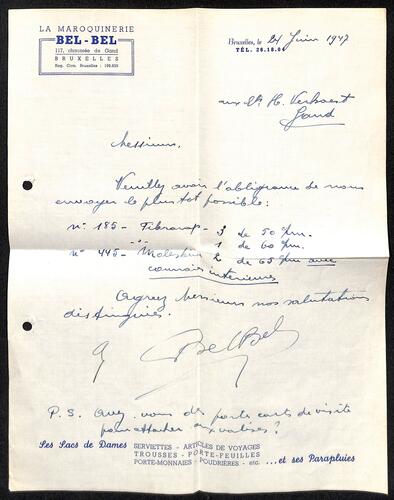 LA MAROQUINERIE
BEL-BEL
117, chaussée de Gand
BRUXELLES
Reg. Com. Bruxelles : 190.839
Bruxelles, le 21 Juin 1947
TÉL. 26.15.04
aux Ets H. Verhaest
Gand
Messieurs,
Veuillez avoir l'obligeance de nous
envoyer le plus tôt possible:
n° 185 - Fibramp - 3 de 50 c/m.
" 1 de 60 c/m.
n° 445 - Moleskin 2 de 65 c/m avec
courroies intérieures
Agréez Messieurs nos salutations
distinguées.
BelBel
P.S. Avez-vous des porte carte de visite
pour attacher aux valises?
Les Sacs de Dames
SERVIETTES - ARTICLES DE VOYAGES
TROUSSES - PORTE-FEUILLES
PORTE-MONNAIES - POUDRIÈRES - etc.
...et ses Parapluies